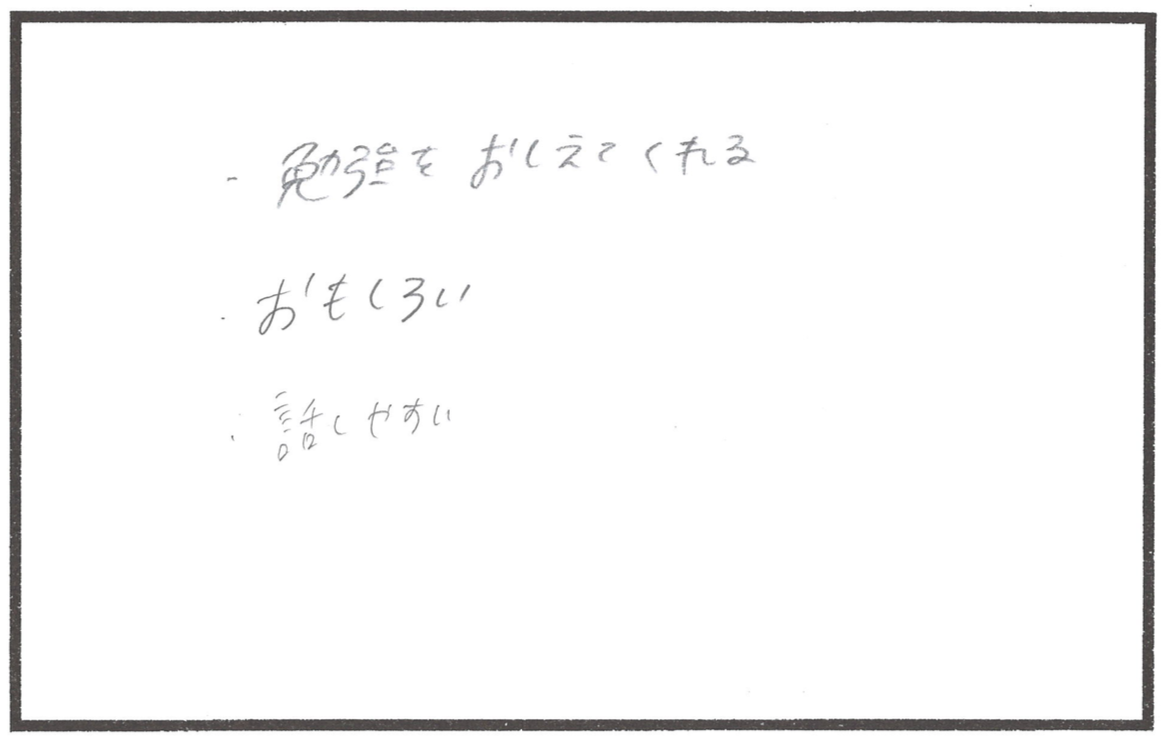 ・勉強をおしえてくれる
・おもしろい
・話しやすい